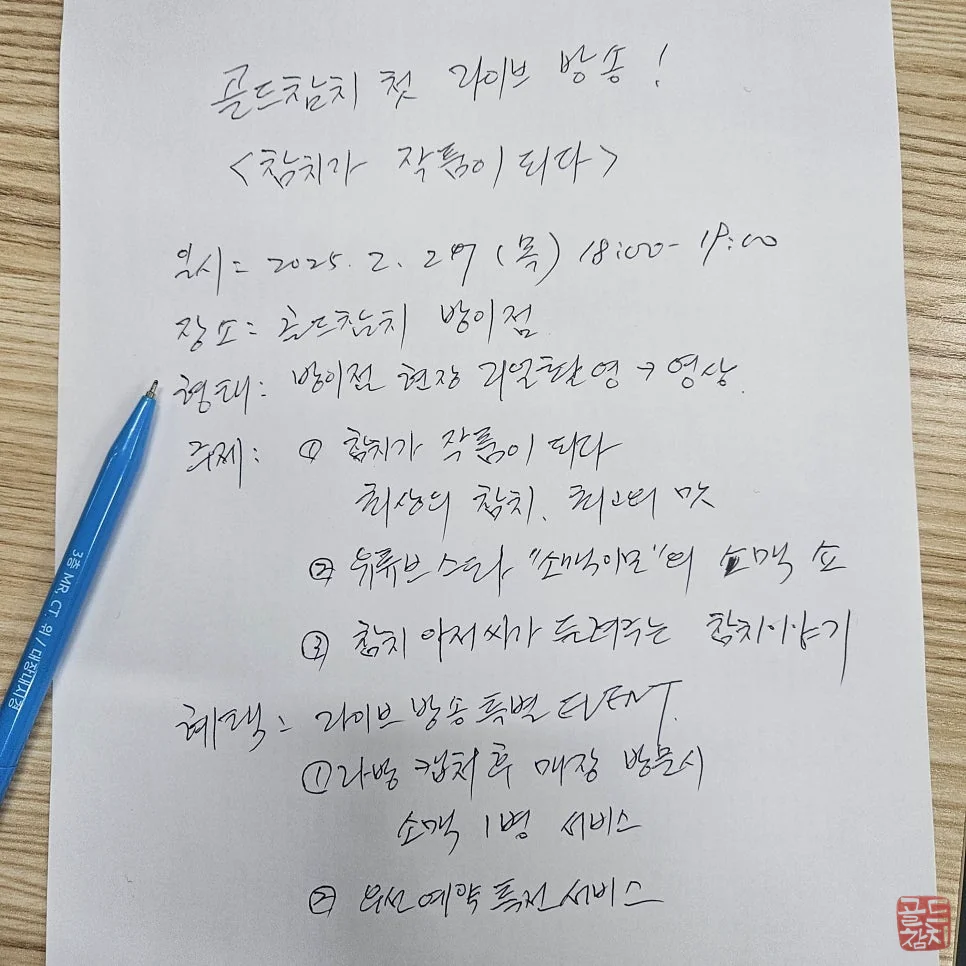 골드참치 첫 라이브 방송!
<참치가 작품이 되다>
일시= 2025. 2. 27 (목) 18:00- 19:00
장소= 골드참치 방이점
형태: 방이점 현장 리얼촬영 → 영상.
주제: ① 참치가 작품이 되다
최상의 참치. 최고의 맛
② 유튜브 스타 "소맥이모"의 소맥 쇼
③ 참치 아저씨가 들려주는 참치이야기
혜택= 라이브 방송 특별 EVENT.
① 라방 캡처 후 매장 방문시
소맥 1병 서비스
② 우선예약 특전 서비스
3층 MR. CT. 위 / 대장내시경
골드
참치